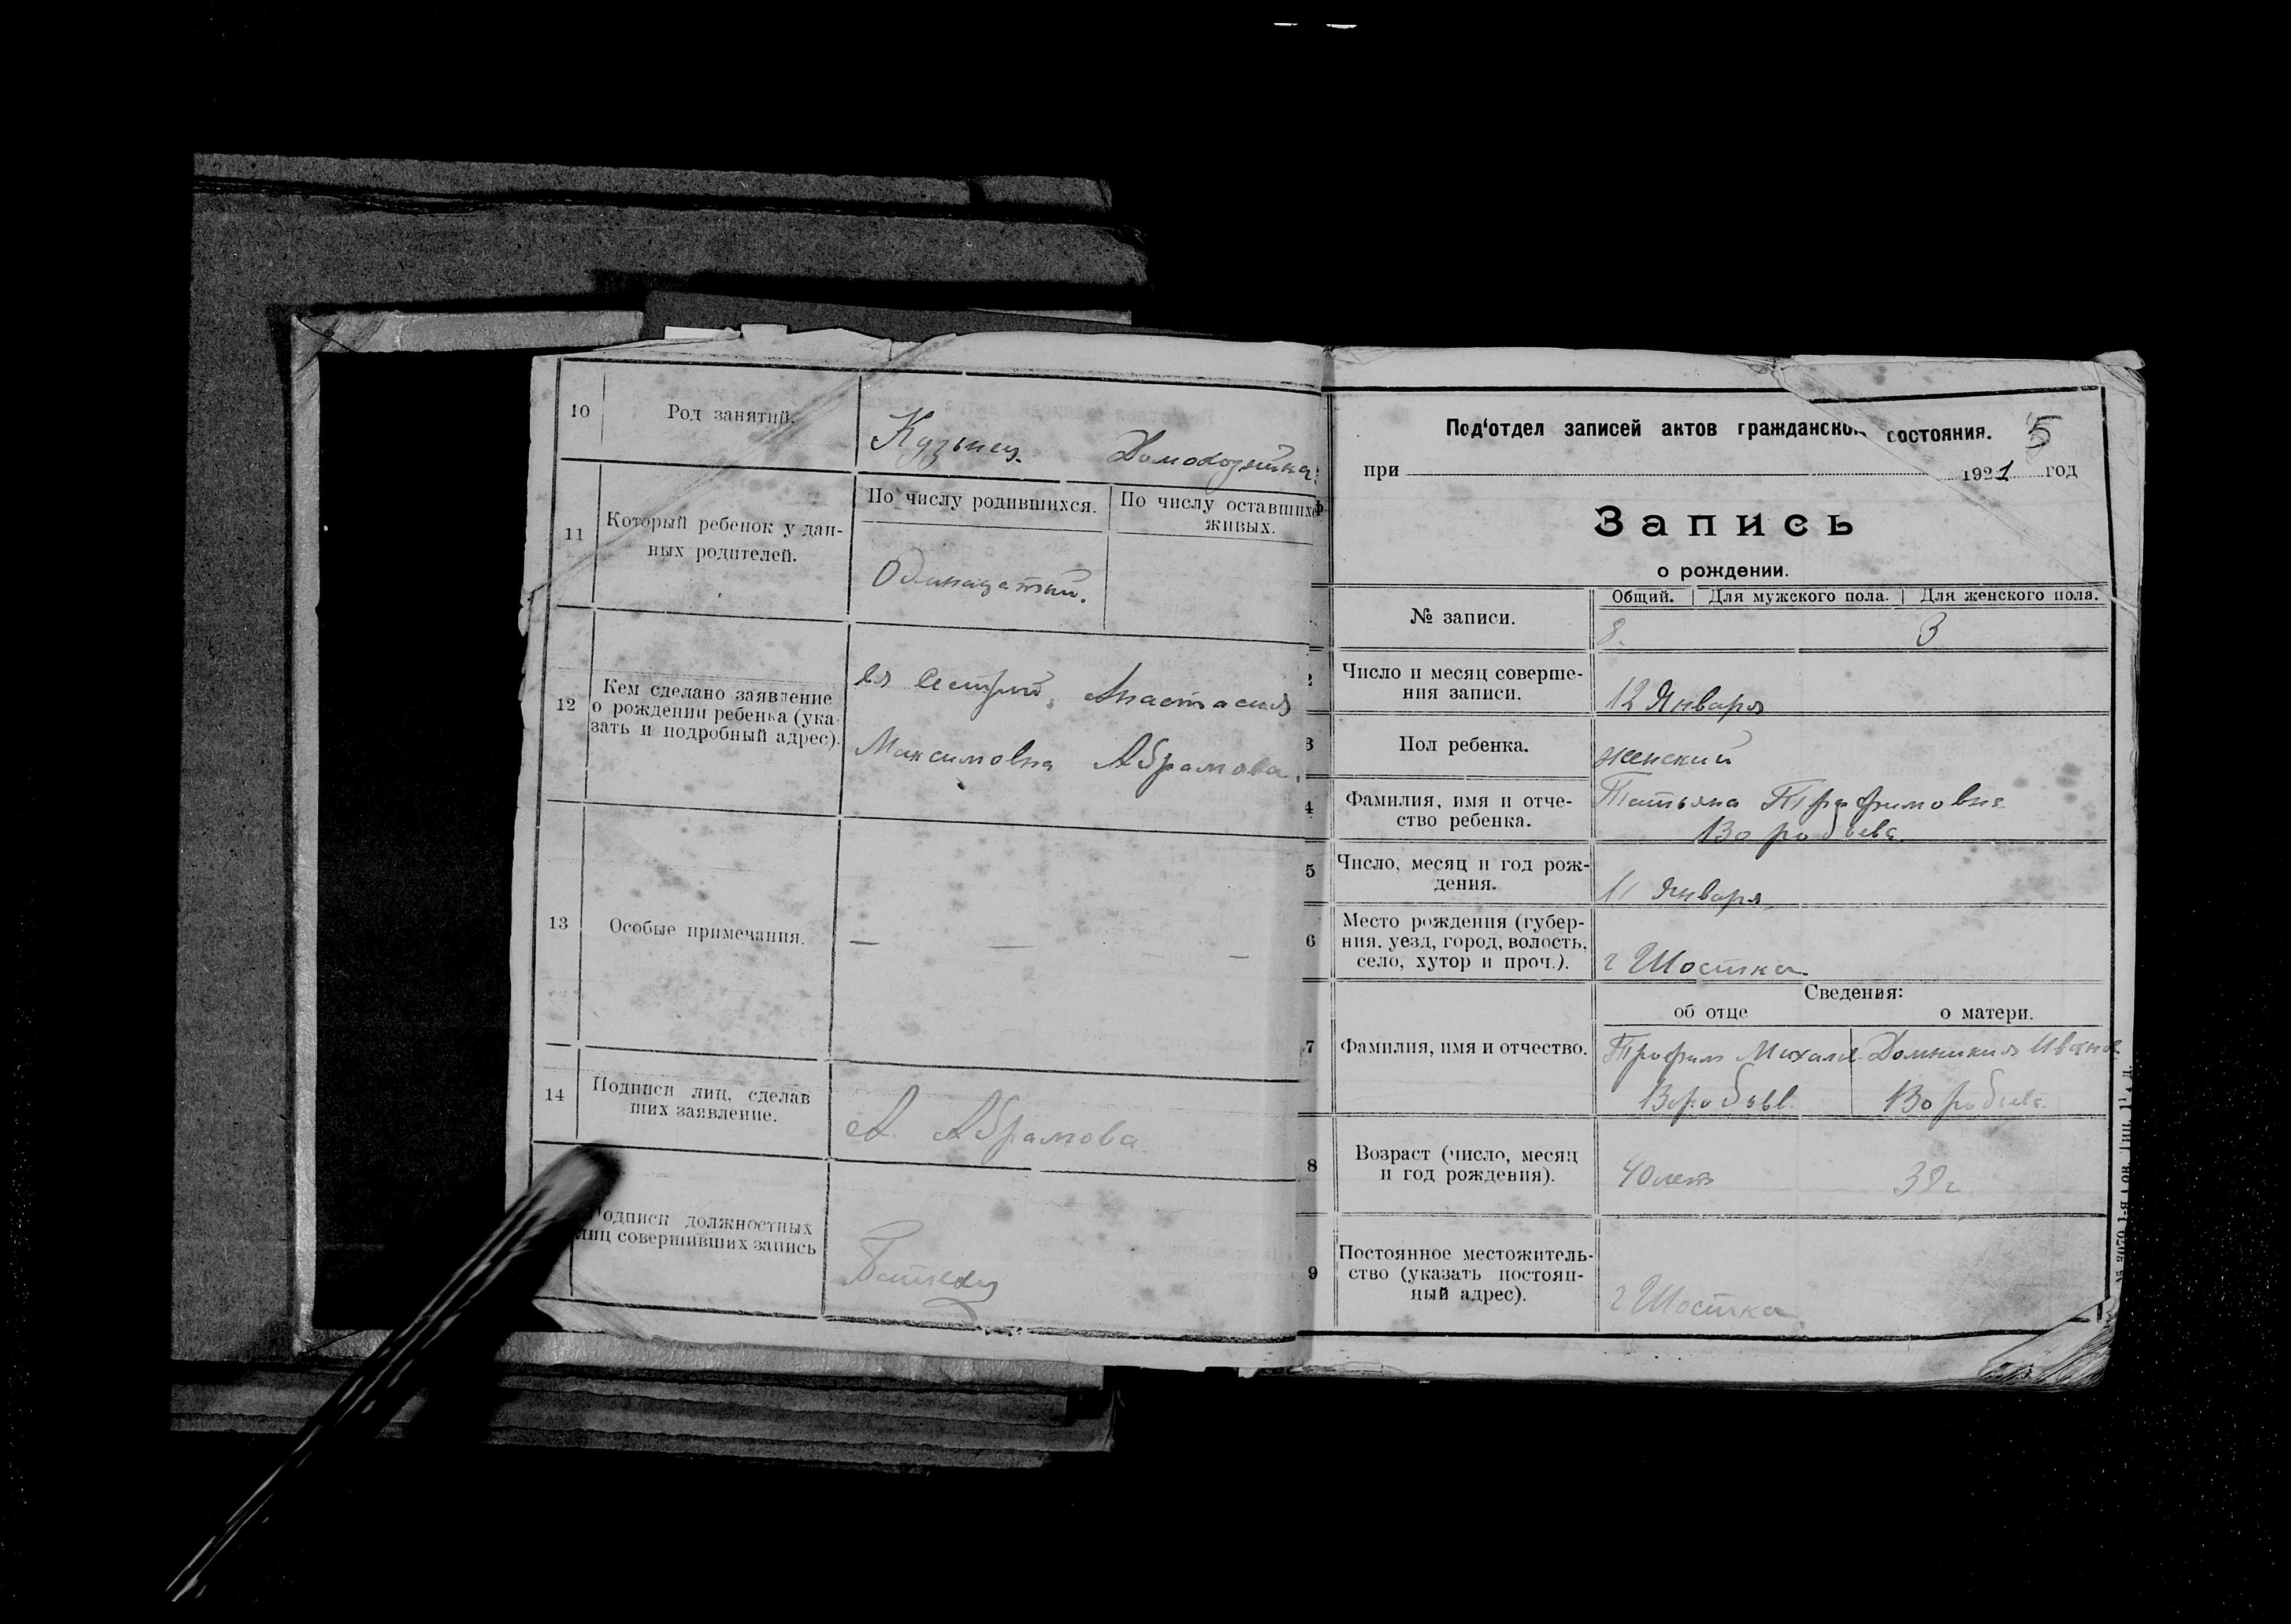 10
Род занятий.
Кузнец. Домохозяйка.
11
Который ребенок у дан-
ных родителей.
По числу родившихся.
По числу оставшихся
живых.
Одинацатый.
12
Кем сделано заявление
о рождении ребенка (ука-
зать и подробный адрес).
ея Сестрой, Анастасия
Максимовна Абрамова.
13
Особые примечания.
— — —
14
Подписи лиц, сделав
ших заявление.
А. Абрамова
Подписи должностных
лиц совершивших запись
Под‘отдел записей актов гражданского состояния. 5
при 1921 год
Запись
о рождении.
№ записи.
Общий. Для мужского пола. Для женского пола.
8. 3
2
Число и месяц соверше-
ния записи.
12 Января
3
Пол ребенка.
женский
4
Фамилия, имя и отче-
ство ребенка.
Татьяна Трафимовна
Воробьева
5
Число, месяц и год рож-
дения.
11 Января
6
Место рождения (губер-
ния, уезд, город, волость,
село, хутор и проч.).
г Шостка.
Сведения:
об отце о матери.
7
Фамилия, имя и отчество.
Трофим Михайл. Домникия Иванов.
Воробьев Воробьева
8
Возраст (число, месяц
и год рождения).
40 лет 39 г
9
Постоянное местожитель-
ство (указать постоян-
ный адрес).
г Шостка.